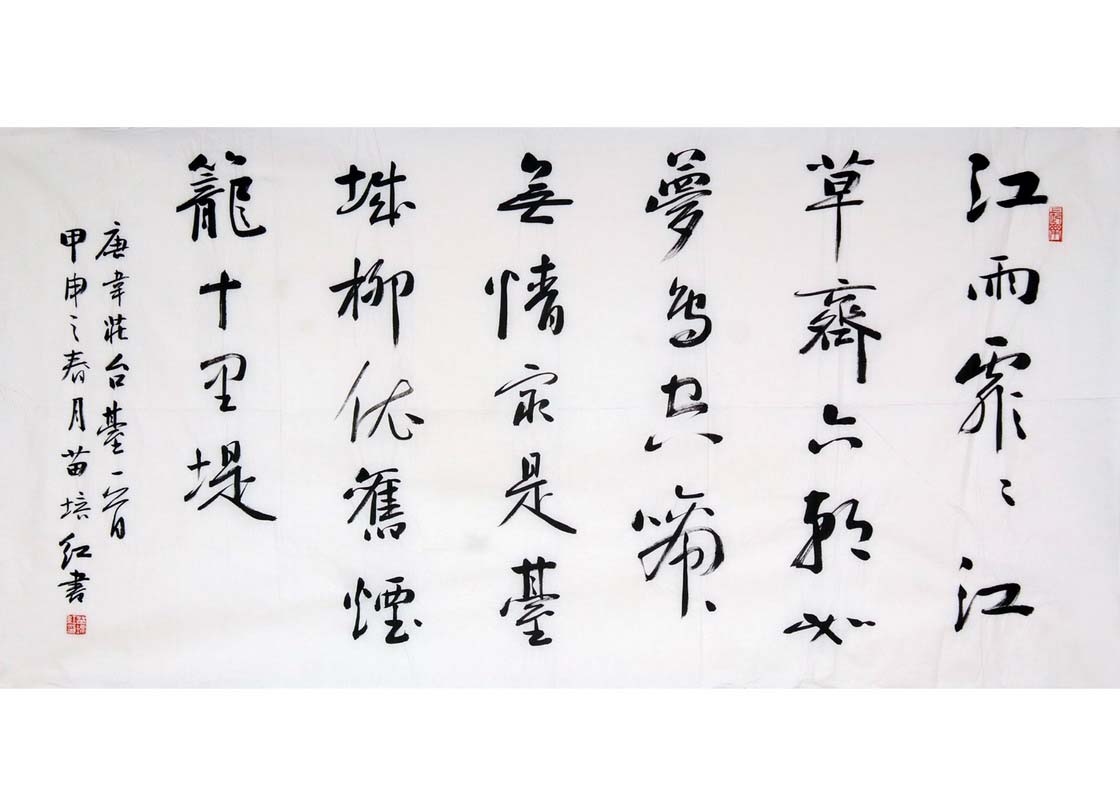 江雨霏〻江
草齊六朝如
夢鳥空啼、
無情最是臺
城柳依舊煙
籠十里堤
唐韋莊台臺一首
甲申之春月苗培红書